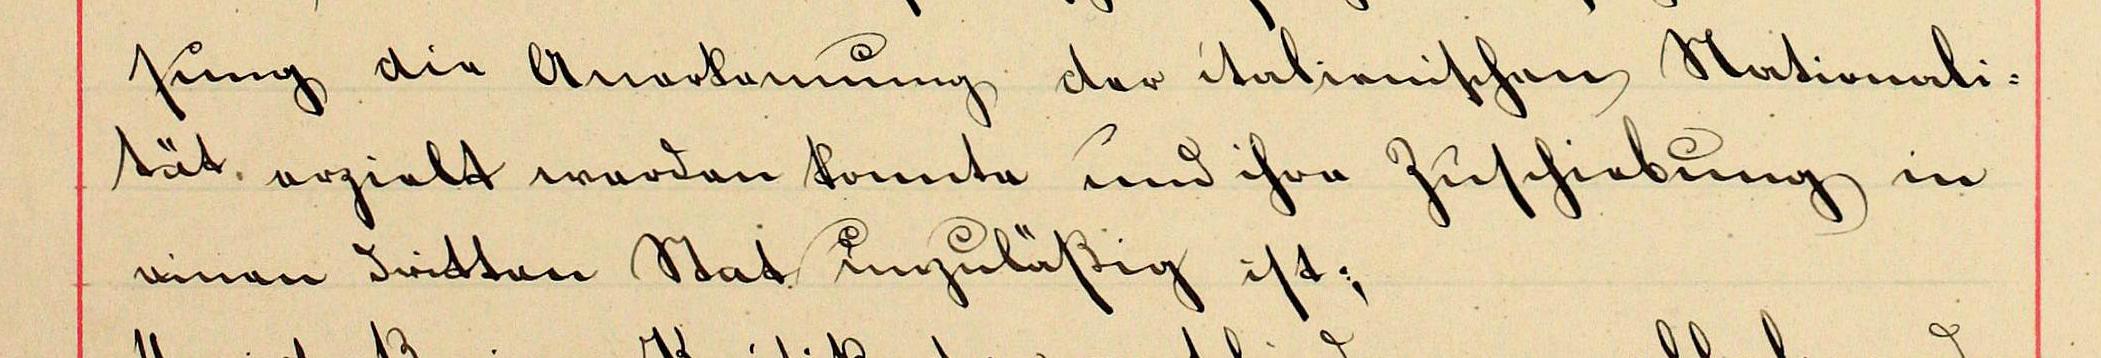 sung die Anerkennung der italienischen Nationali-
tät erzielt werden konnte und ihre Zuschiebung in
einen dritten Stat unzuläßig ist;